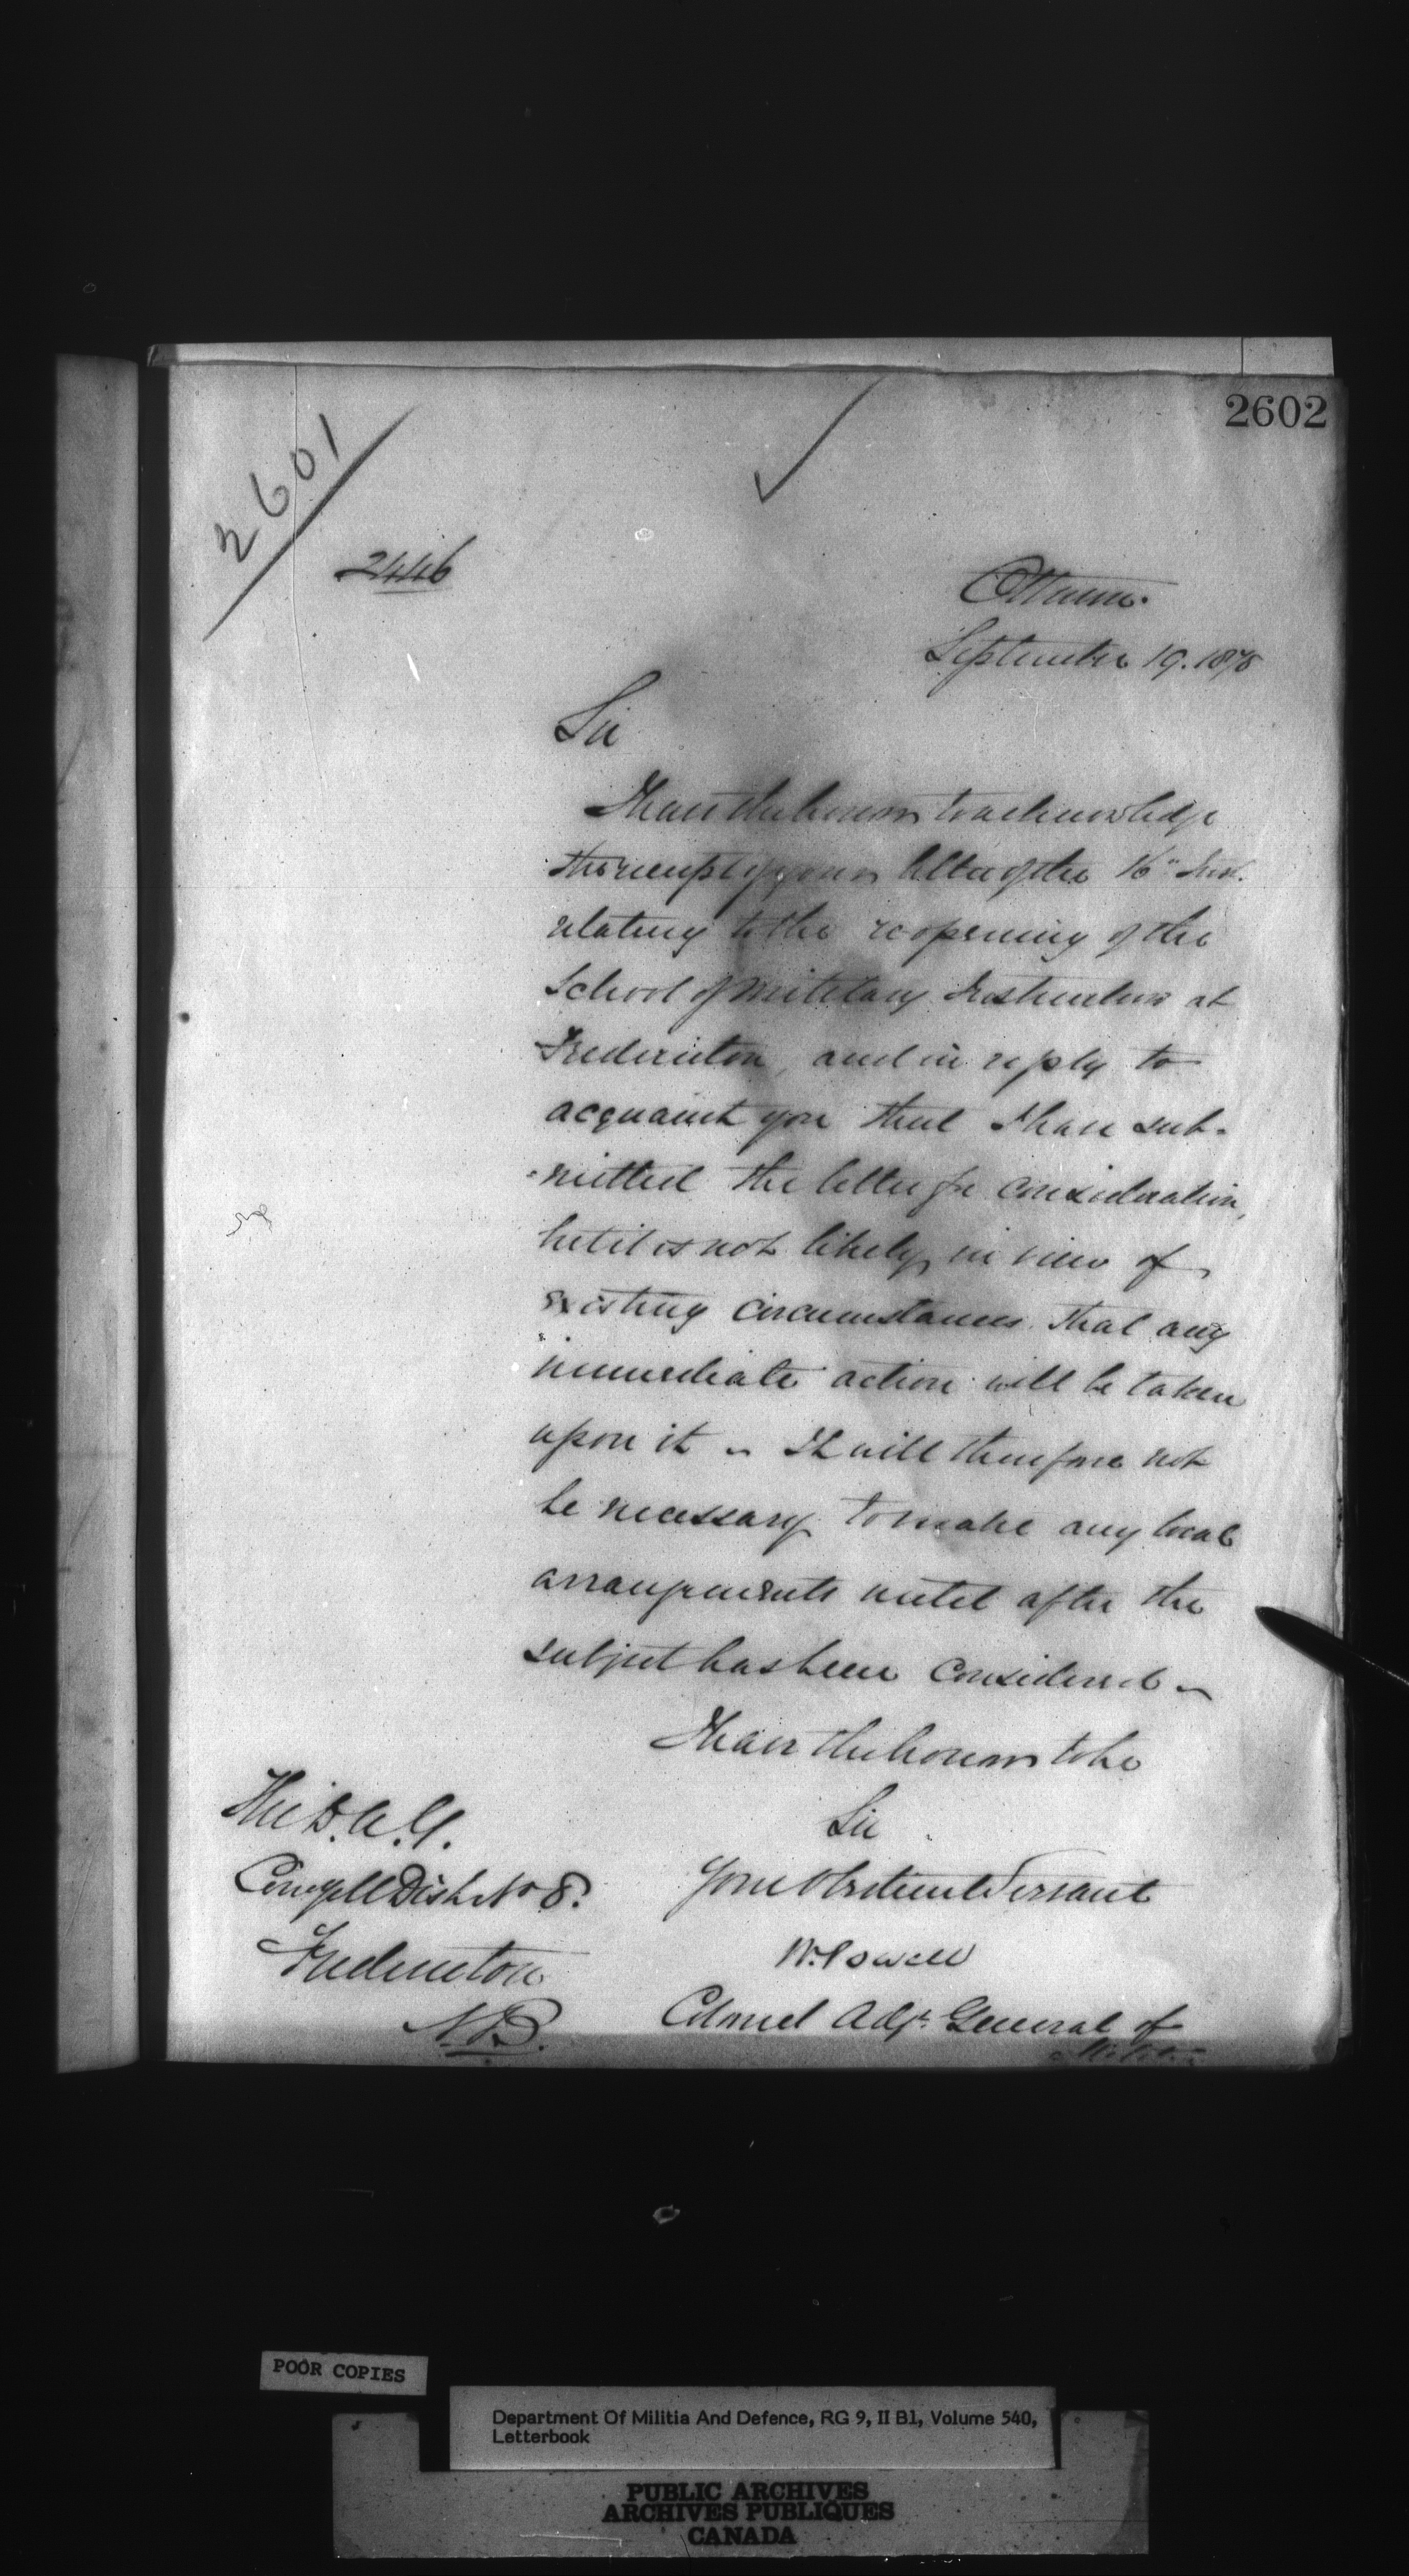 2602
2601
2446
Ottawa.
September 19. 1878
Sir
I have the honour to acknowledge
the receipt of your letter of the 16th Inst.
relating to the reopening of the
School of Military Instruction at
Fredericton, and in reply to
acquaint you that I have sub-
-mitted the letter for consideration,
but it is not likely, in view of
existing circumstances that any
immediate action will be taken
upon it – It will therefore not
be necessary to make any local
arrangements until after the
subject has been considered –
I have the honour to be
Sir
Your Obedient Servant
W. Powell
Colonel Adjt. General of
Militia
The D.A.G.
Comg Dist No 8.
Fredericton
N.B.
POOR COPIES
Department Of Militia And Defence, RG 9, II B1, Volume 540,
Letterbook
PUBLIC ARCHIVES
ARCHIVES PUBLIQUES
CANADA